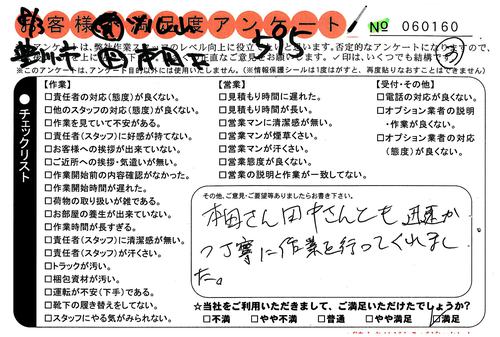 お客様満足度アンケート
№ 060160
※このアンケートは、アンケート目的以外には使用いたしません。(※情報保護シールは1度はがすと、再度貼りなおすことはできません)
チェックリスト
【作業】
□責任者の対応(態度)が良くない。
□他のスタッフの対応(態度)が良くない。
□作業を見ていて不安がある。
□責任者(スタッフ)に好感が持てない。
□お客様への挨拶が出来ていない。
□ご近所への挨拶・気遣いが無い。
□作業開始前の内容確認がなかった。
□作業開始時間が遅れた。
□荷物の取り扱いが雑である。
□お部屋の養生が出来ていない。
□作業時間が長すぎる。
□責任者(スタッフ)に清潔感が無い。
□責任者(スタッフ)が汗くさい。
□トラックが汚い。
□梱包資材が汚い。
□運転が不安(下手)である。
□靴下の履き替えをしてない。
□スタッフにやる気がみられない。
【営業】
□見積もり時間に遅れた。
□見積もり時間が長い。
□営業マンに清潔感が無い。
□営業マンが煙草くさい。
□営業マンが汗くさい。
□営業態度が良くない。
□営業の説明と作業が一致してない。
【受付・その他】
□電話の対応が良くない。
□オプション業者の説明
・作業が良くない。
□オプション業者の対応
(態度)が良くない。
その他、ご意見・ご要望等ありましたらお書き下さい。
本田さん田中さんとも迅速か
つ丁寧に作業を行ってくれまし
た。
☆当社をご利用いただきまして、ご満足いただけたでしょうか?
□不満 □やや不満 □普通 □やや満足 □満足